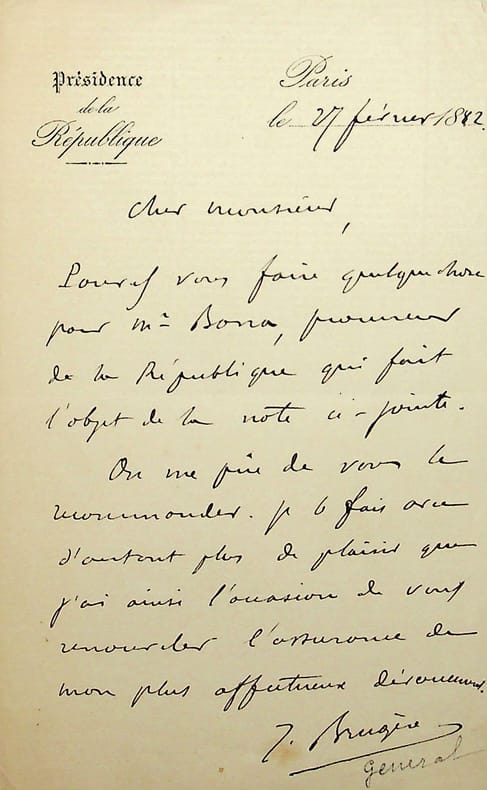 Présidence
de la
République
Paris
le 27 février 1882.
Cher monsieur,
Pouvez vous faire quelque chose
pour Mr , procureur
de la République qui fait
l'objet de la note ci-jointe.
On me prie de vous le
recommander. Je le fais avec
d'autant plus de plaisir que
j'ai ainsi l'occasion de vous
renouveler l'assurance de
mon plus affectueux dévouement.
J. Brugère
General